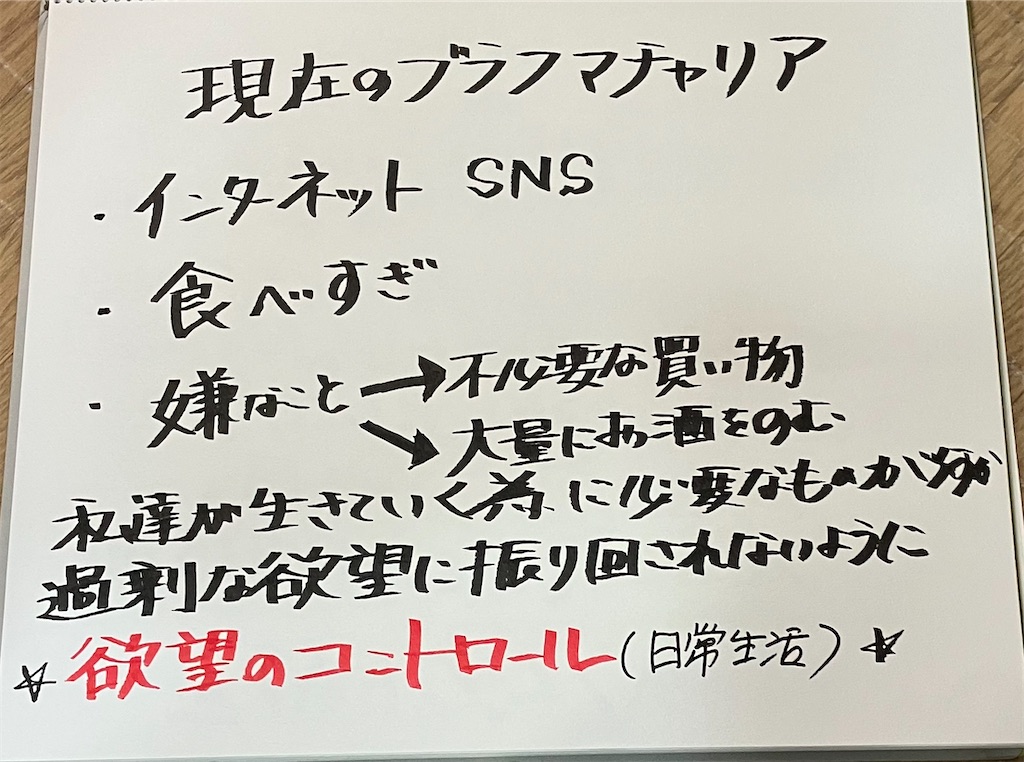 現在のブラフマチャリア
・インターネット SNS
・食べすぎ
・嫌なこと→不必要な買い物
↘大量にお酒をのむ
私達が生きていく為に必要なものだが
過剰な欲望に振り回されないように
☆欲望のコントロール(日常生活)☆